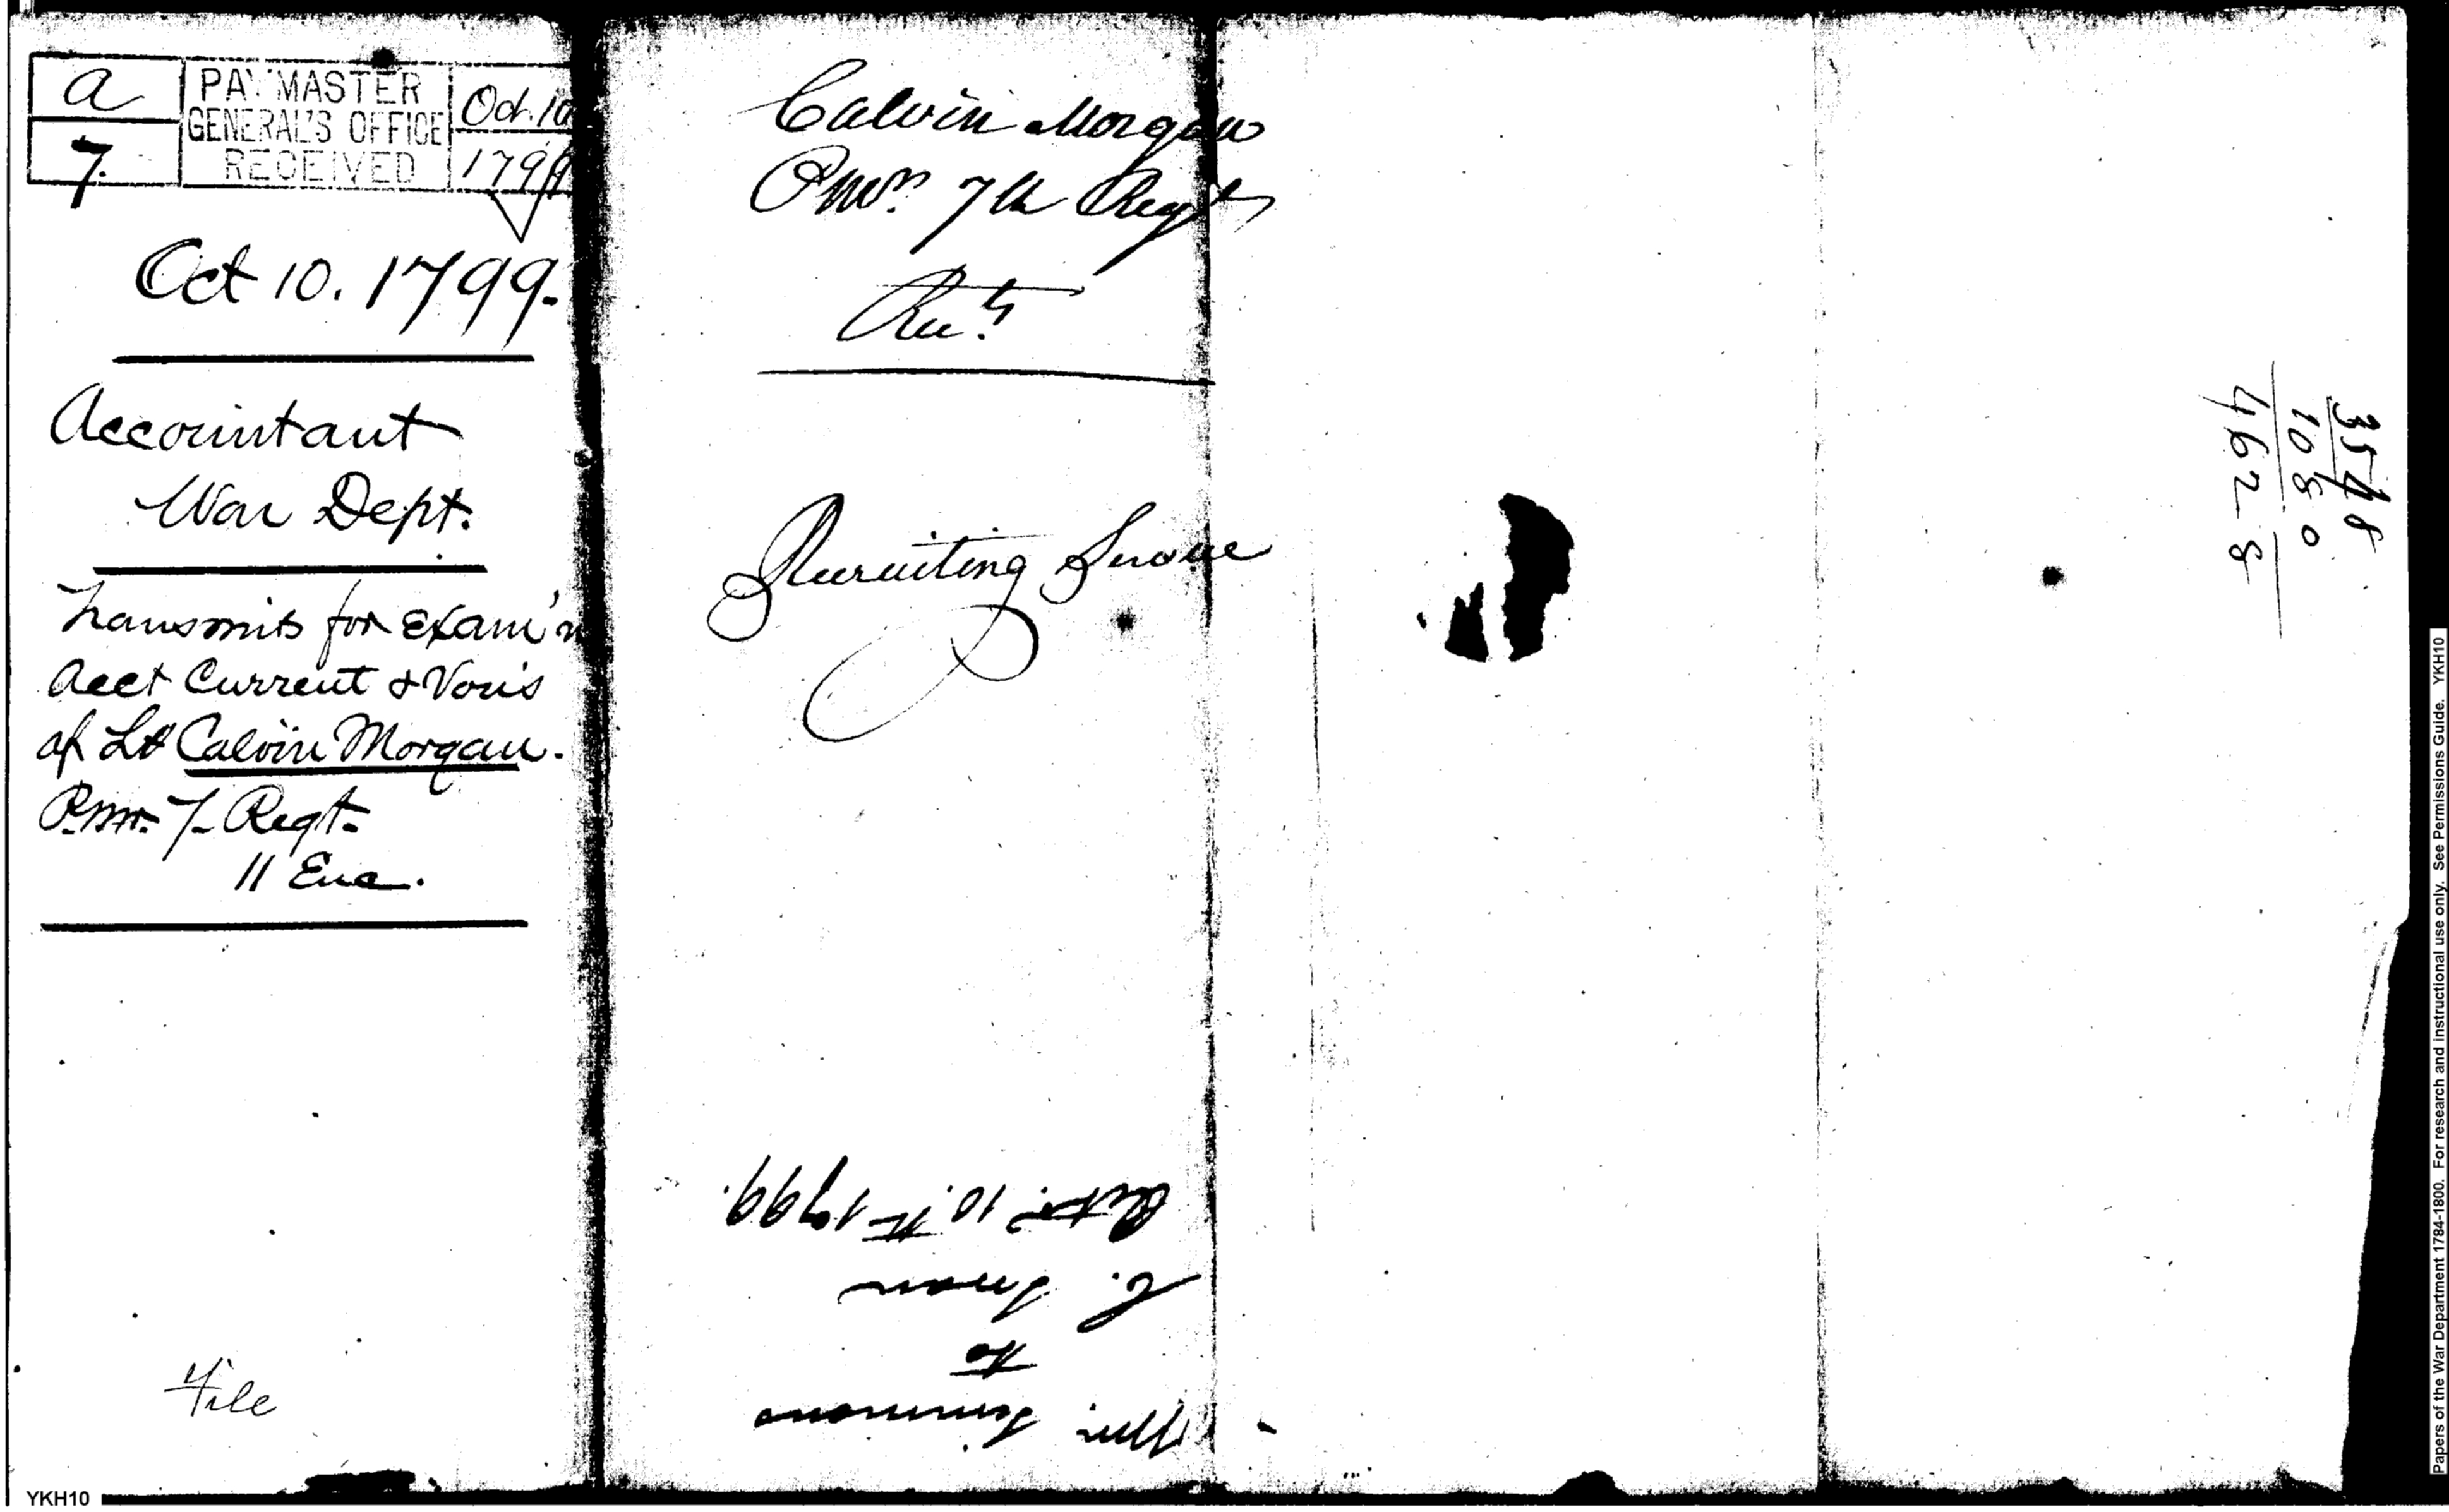 a
7.
PAYMASTER
GENERAL'S OFFICE
RECEIVED
Oct. 10
1799
Oct 10. 1799.
Accountant
War Dept.
Transmits for Exam'n
Acct Current & Vou's
of Lt Calvin Morgan.
P.mr. 7 Regt.
11 Enc.
File
Calvin Morgan
PMr. 7th Regt
Recruiting Service
Wm. Simmons
to
C. Swan
Octr. 10th 1799.
3548
1080
4628
Papers of the War Department 1784-1800. For research and instructional use only. See Permissions Guide. YKH10
YKH10